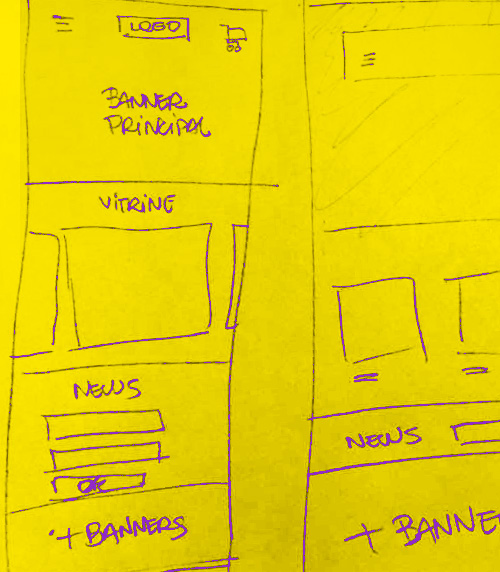 LOGO
BANNER
PRINCIPAL
VITRINE
NEWS
OK
+ BANNERS
NEWS
+ BANNE